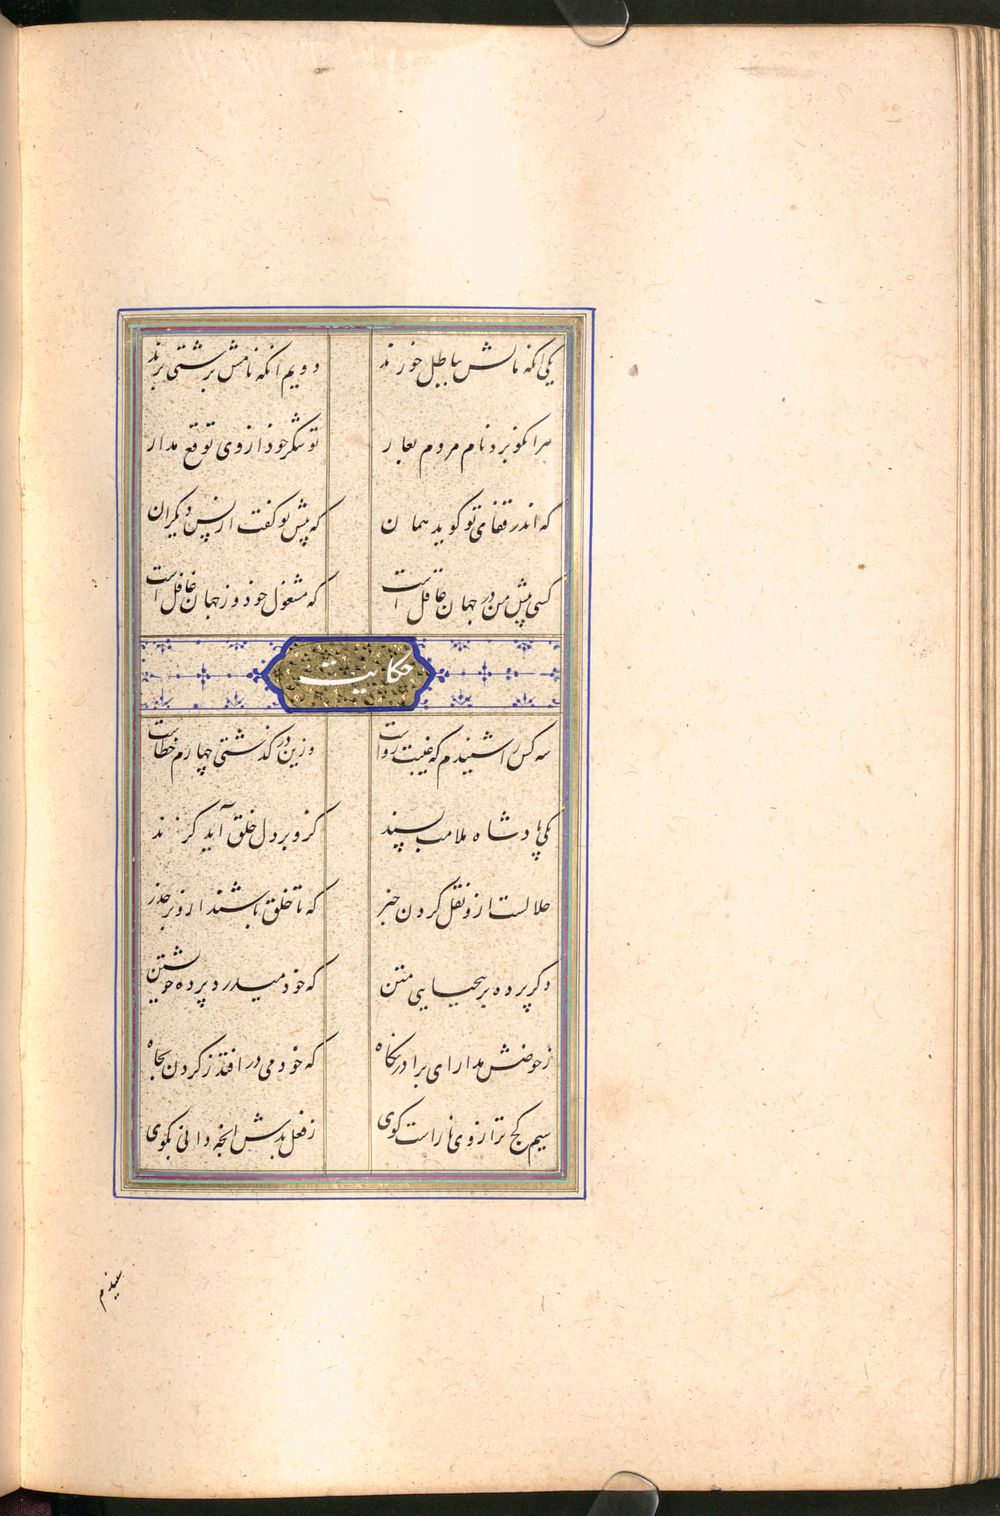 یکی انکه مالش بباطل خورند دویم انکه نامش بزشتی برند
هرانکو برد نام مردم بعار تو نیکر خوذ از وی توقع مدار
که اندر قفای تو کوید همان که پیش تو کفت از پس دیکران
کسی پیش من در جهان عاقل است که مشغول خوذ وز جهان غافل است
حکایت
سه کس را شنیدم که غیبت رواست وزین درکذشتی چهارم خطاست
یکی پادشاه ملامت پسند کزو بر دل خلق آید کزند
حلالست ازو نقل کردن خبر که تا خلق باشند ازو بر حذر
دکر پرده بر بیحیایی متن که خوذ میدرد پرده خویشتن
ز حوضش مدار ای برادر نکاه که خوذ می درافتذ ز کردن بچاه
سیم کج ترازوی ناراست کوی ز فعل بدش انچه دانی بکوی